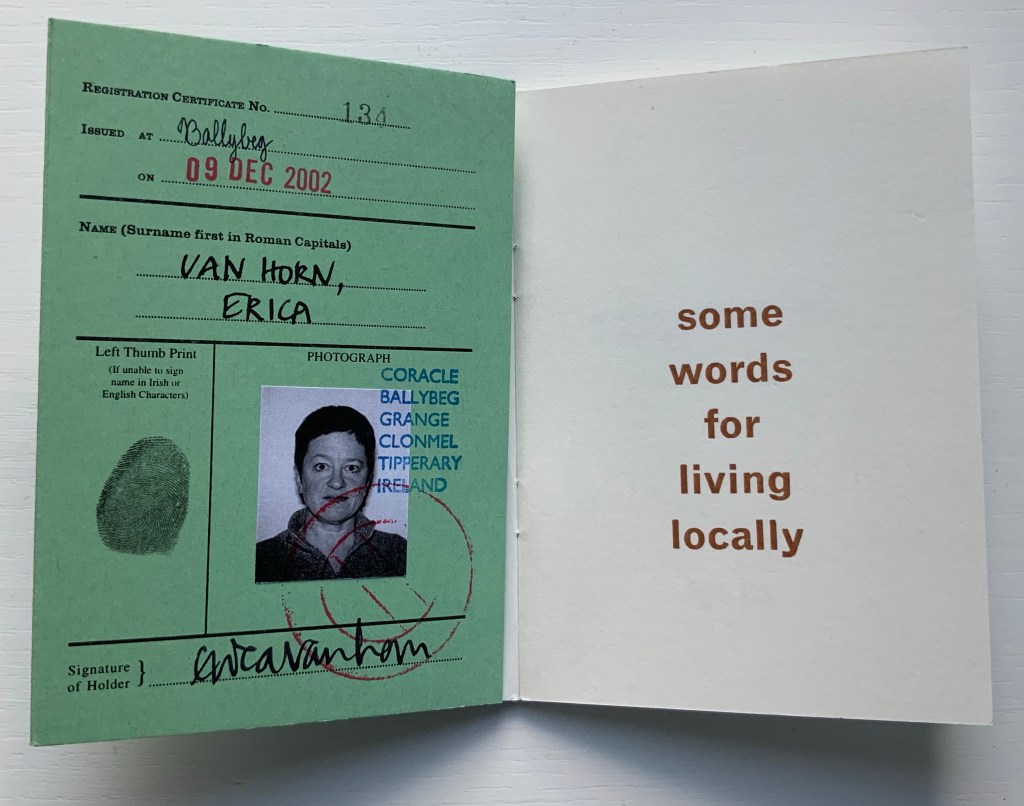 REGISTRATION CERTIFICATE NO. 134
ISSUED AT Ballybeg
ON 09 DEC 2002
NAME (Surname first in Roman Capitals)
VAN HORN,
ERICA
Left Thumb Print
(If unable to sign
name in Irish or
English Characters)
PHOTOGRAPH
CORACLE
BALLYBEG
GRANGE
CLONMEL
TIPPERARY
IRELAND
Signature
of Holder } ericavanhorn
some
words
for
living
locally